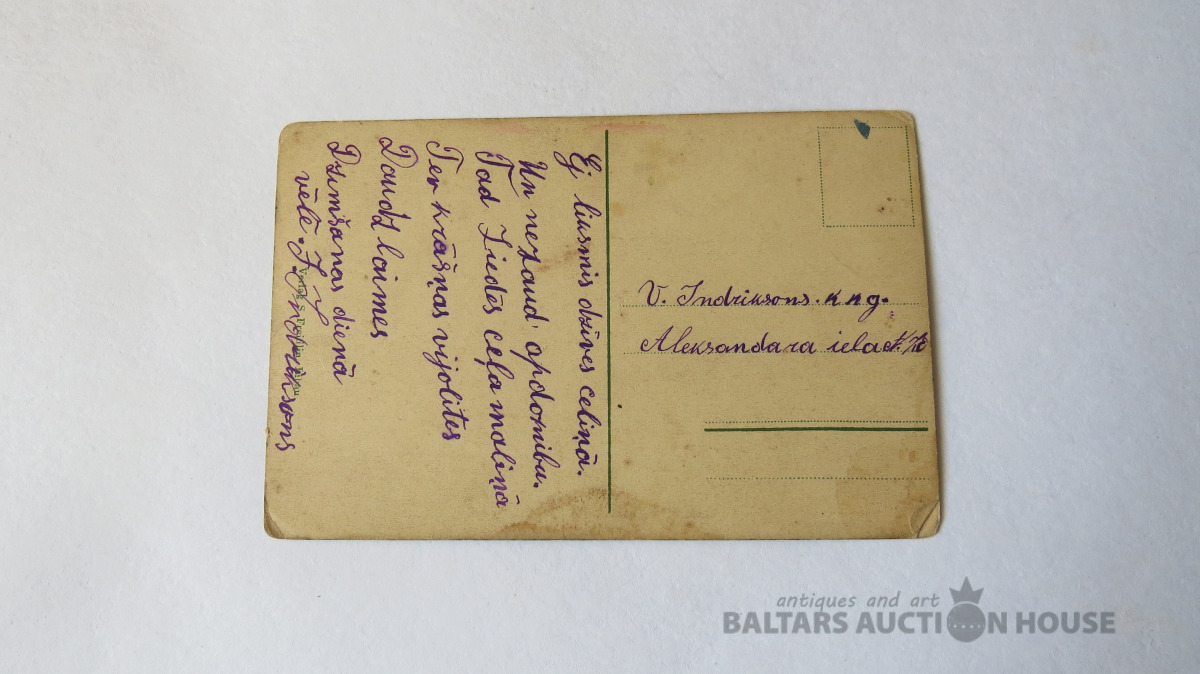 Ej liksmis dzīves celiņā.
Un nezaud' apdomību.
Tad ziedēs ceļa maliņā
Ter krāšņas vijolites
Daudz laimes
Dzimšanas dienā
vēlē. J. Indriksons
V. Indriksons. kkg.
Aleksandara iela
antiques and art
BALTARS AUCTION HOUSE